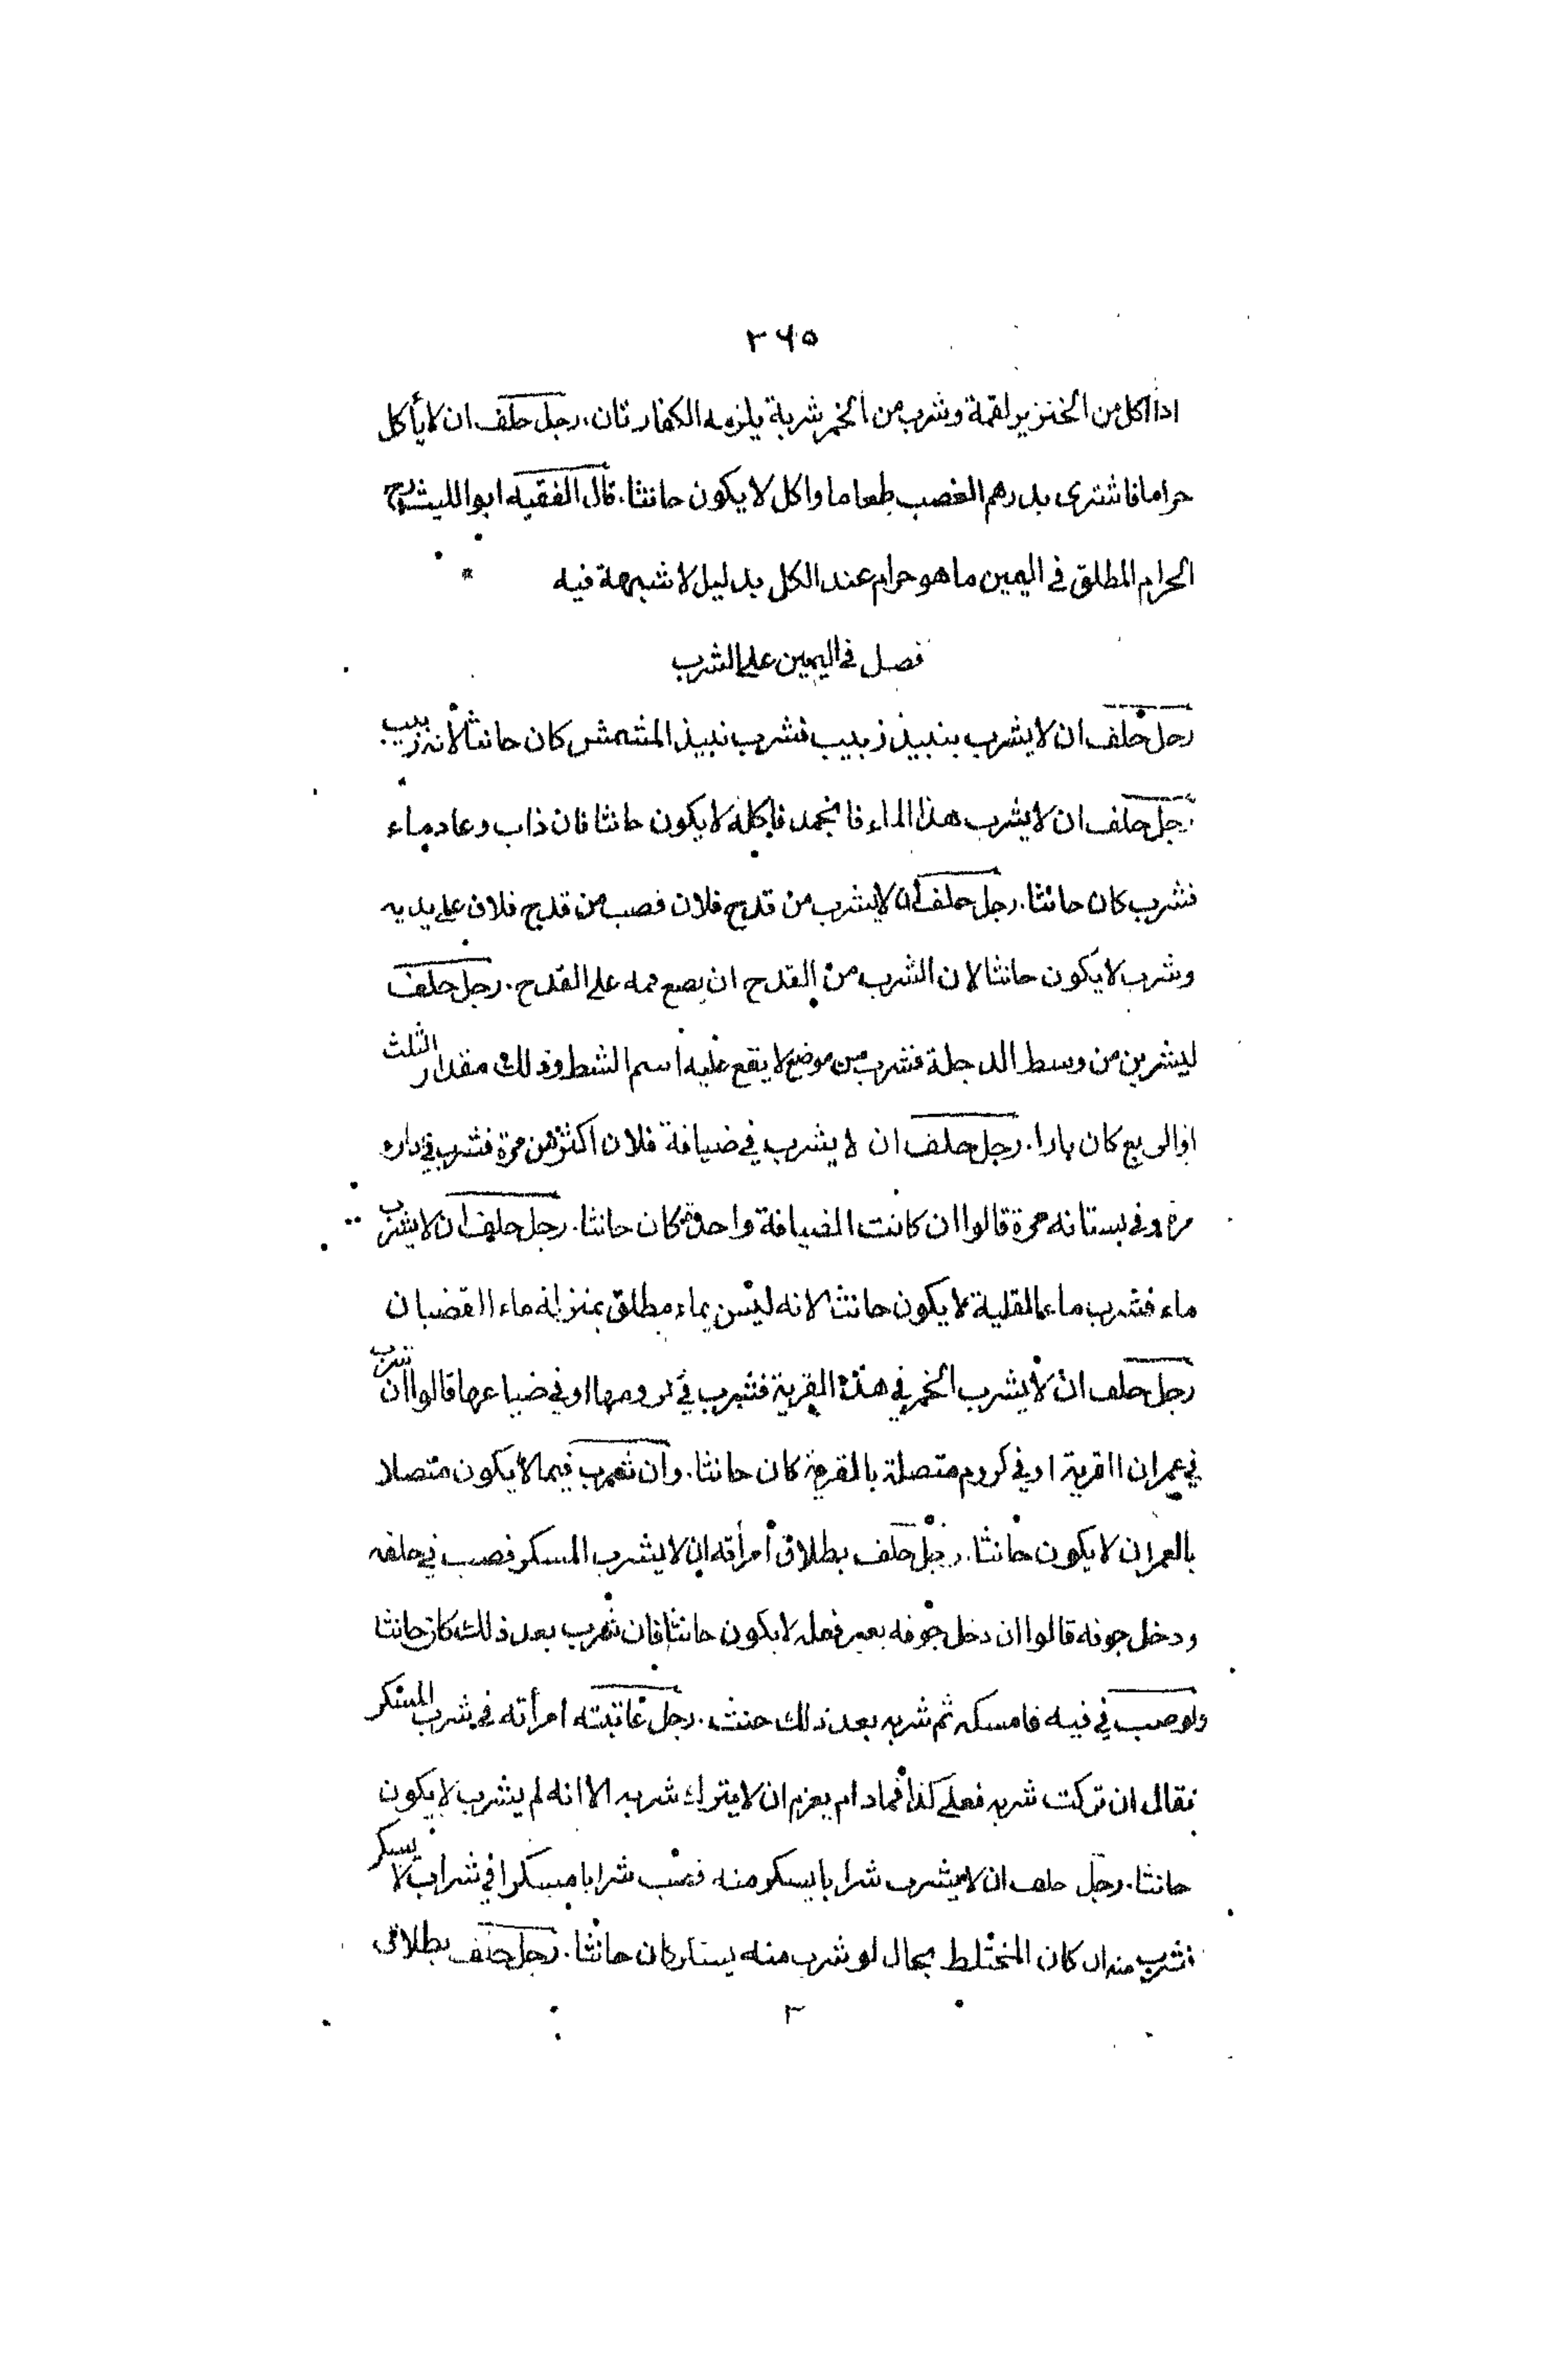 ٢٦٥
اذا اكل من الخنزير لقمة وشرب من الخمر شربة يلزمه الكفارتان. رجل حلف ان لا يأكل
حراما فاشترى بدرهم الغصب طعاما واكل لا يكون حانثا. قال الفقيه ابو الليث رح
الحرام المطلق في اليمين ما هو حرام عند الكل بدليل لا شبهة فيه *
فصل في اليمين على الشرب
رجل حلف ان لا يشرب بنبيذ زبيب فشرب نبيذ المشمش كان حانثا لانه زبيب
رجل حلف ان لا يشرب هذا الماء فانجمد فاكله لا يكون حانثا فان ذاب وعاد ماء
فشرب كان حانثا. رجل حلف ان لا يشرب من قدح فلان فصب من قدح فلان على يديه
وشرب لا يكون حانثا لان الشرب من القدح ان يضع فمه على القدح. رجل حلف
ليشربن من وسط الدجلة فشرب من موضع لا يقع عليه اسم الشط وذلك مقدار الثلث
او الربع كان بارا. رجل حلف ان لا يشرب في ضيافة فلان اكثر من مرة فشرب في داره
مرة وفي بستانه مرة قالوا ان كانت الضيافة واحدة كان حانثا. رجل حلف ان لا يشرب
ماء فشرب ماء القلية لا يكون حانثا لانه ليس بماء مطلق بمنزلة ماء القضبان
رجل حلف ان لا يشرب الخمر في هذه القرية فشرب في كرومها او في ضياعها قالوا ان شرب
في عمران القرية او في كروم متصلة بالقرية كان حانثا. وان شرب فيما لا يكون متصلا
بالعمران لا يكون حانثا. رجل حلف بطلاق امرأته ان لا يشرب المسكر فصب في حلقه
ودخل جوفه قالوا ان دخل جوفه بغير فعله لا يكون حانثا فان شرب بعد ذلك كان حانثا
ولو صب في فيه فامسكه ثم شربه بعد ذلك حنث. رجل عاتبته امرأته في شرب المسكر
فقال ان تركت شربه فعلي كذا فما دام يعزم ان لا يترك شربه الا انه لم يشرب لا يكون
حانثا. رجل حلف ان لا يشرب شرابا يسكر منه فصب شرابا مسكرا في شراب لا يسكر
فشرب منه ان كان المختلط بحال لو شرب منه يسكر كان حانثا. رجل حلف بطلاق